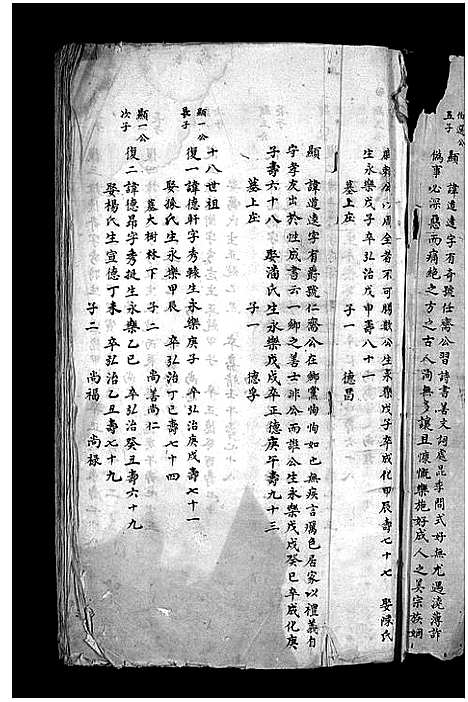 五子
諱道遠字有奇號任齋公習詩書善文詞處昆季間式好無尤遇澆薄詐
偽事必深惡而痛絕之方之古人洵無多讓且慷慨樂施好成人之美宗族姻
以周全者不可勝數公生永樂戊子卒成化甲辰壽七十七 娶陳氏
生永樂戊子 卒弘治戊申壽八十一 子一 德昌
墓上庄
顯 諱道遠字有爵號仁齋公在鄉黨恂恂如也無疾言厲色居家以禮義自
守孝友出於性成書云一鄉之善士非公而誰公生永樂戊戌癸巳卒成化庚
子壽六十八 娶潘氏生永樂戊戌卒正德庚午壽九十三
墓上庄 子一 德孚
十八世祖
顯一公長子
復一諱德軒字秀轅生永樂庚子 卒弘治庚戌壽七十一
娶孫氏生永樂甲辰 卒弘治丁巳壽七十四
墓大樹林下 子二 尚善尚仁
顯一公次子
復二諱德昂字秀挺生永樂乙巳 卒弘治癸丑壽六十九
娶楊氏生宣德丁未 卒弘治乙丑壽七十九
子二 尚福 尚祿